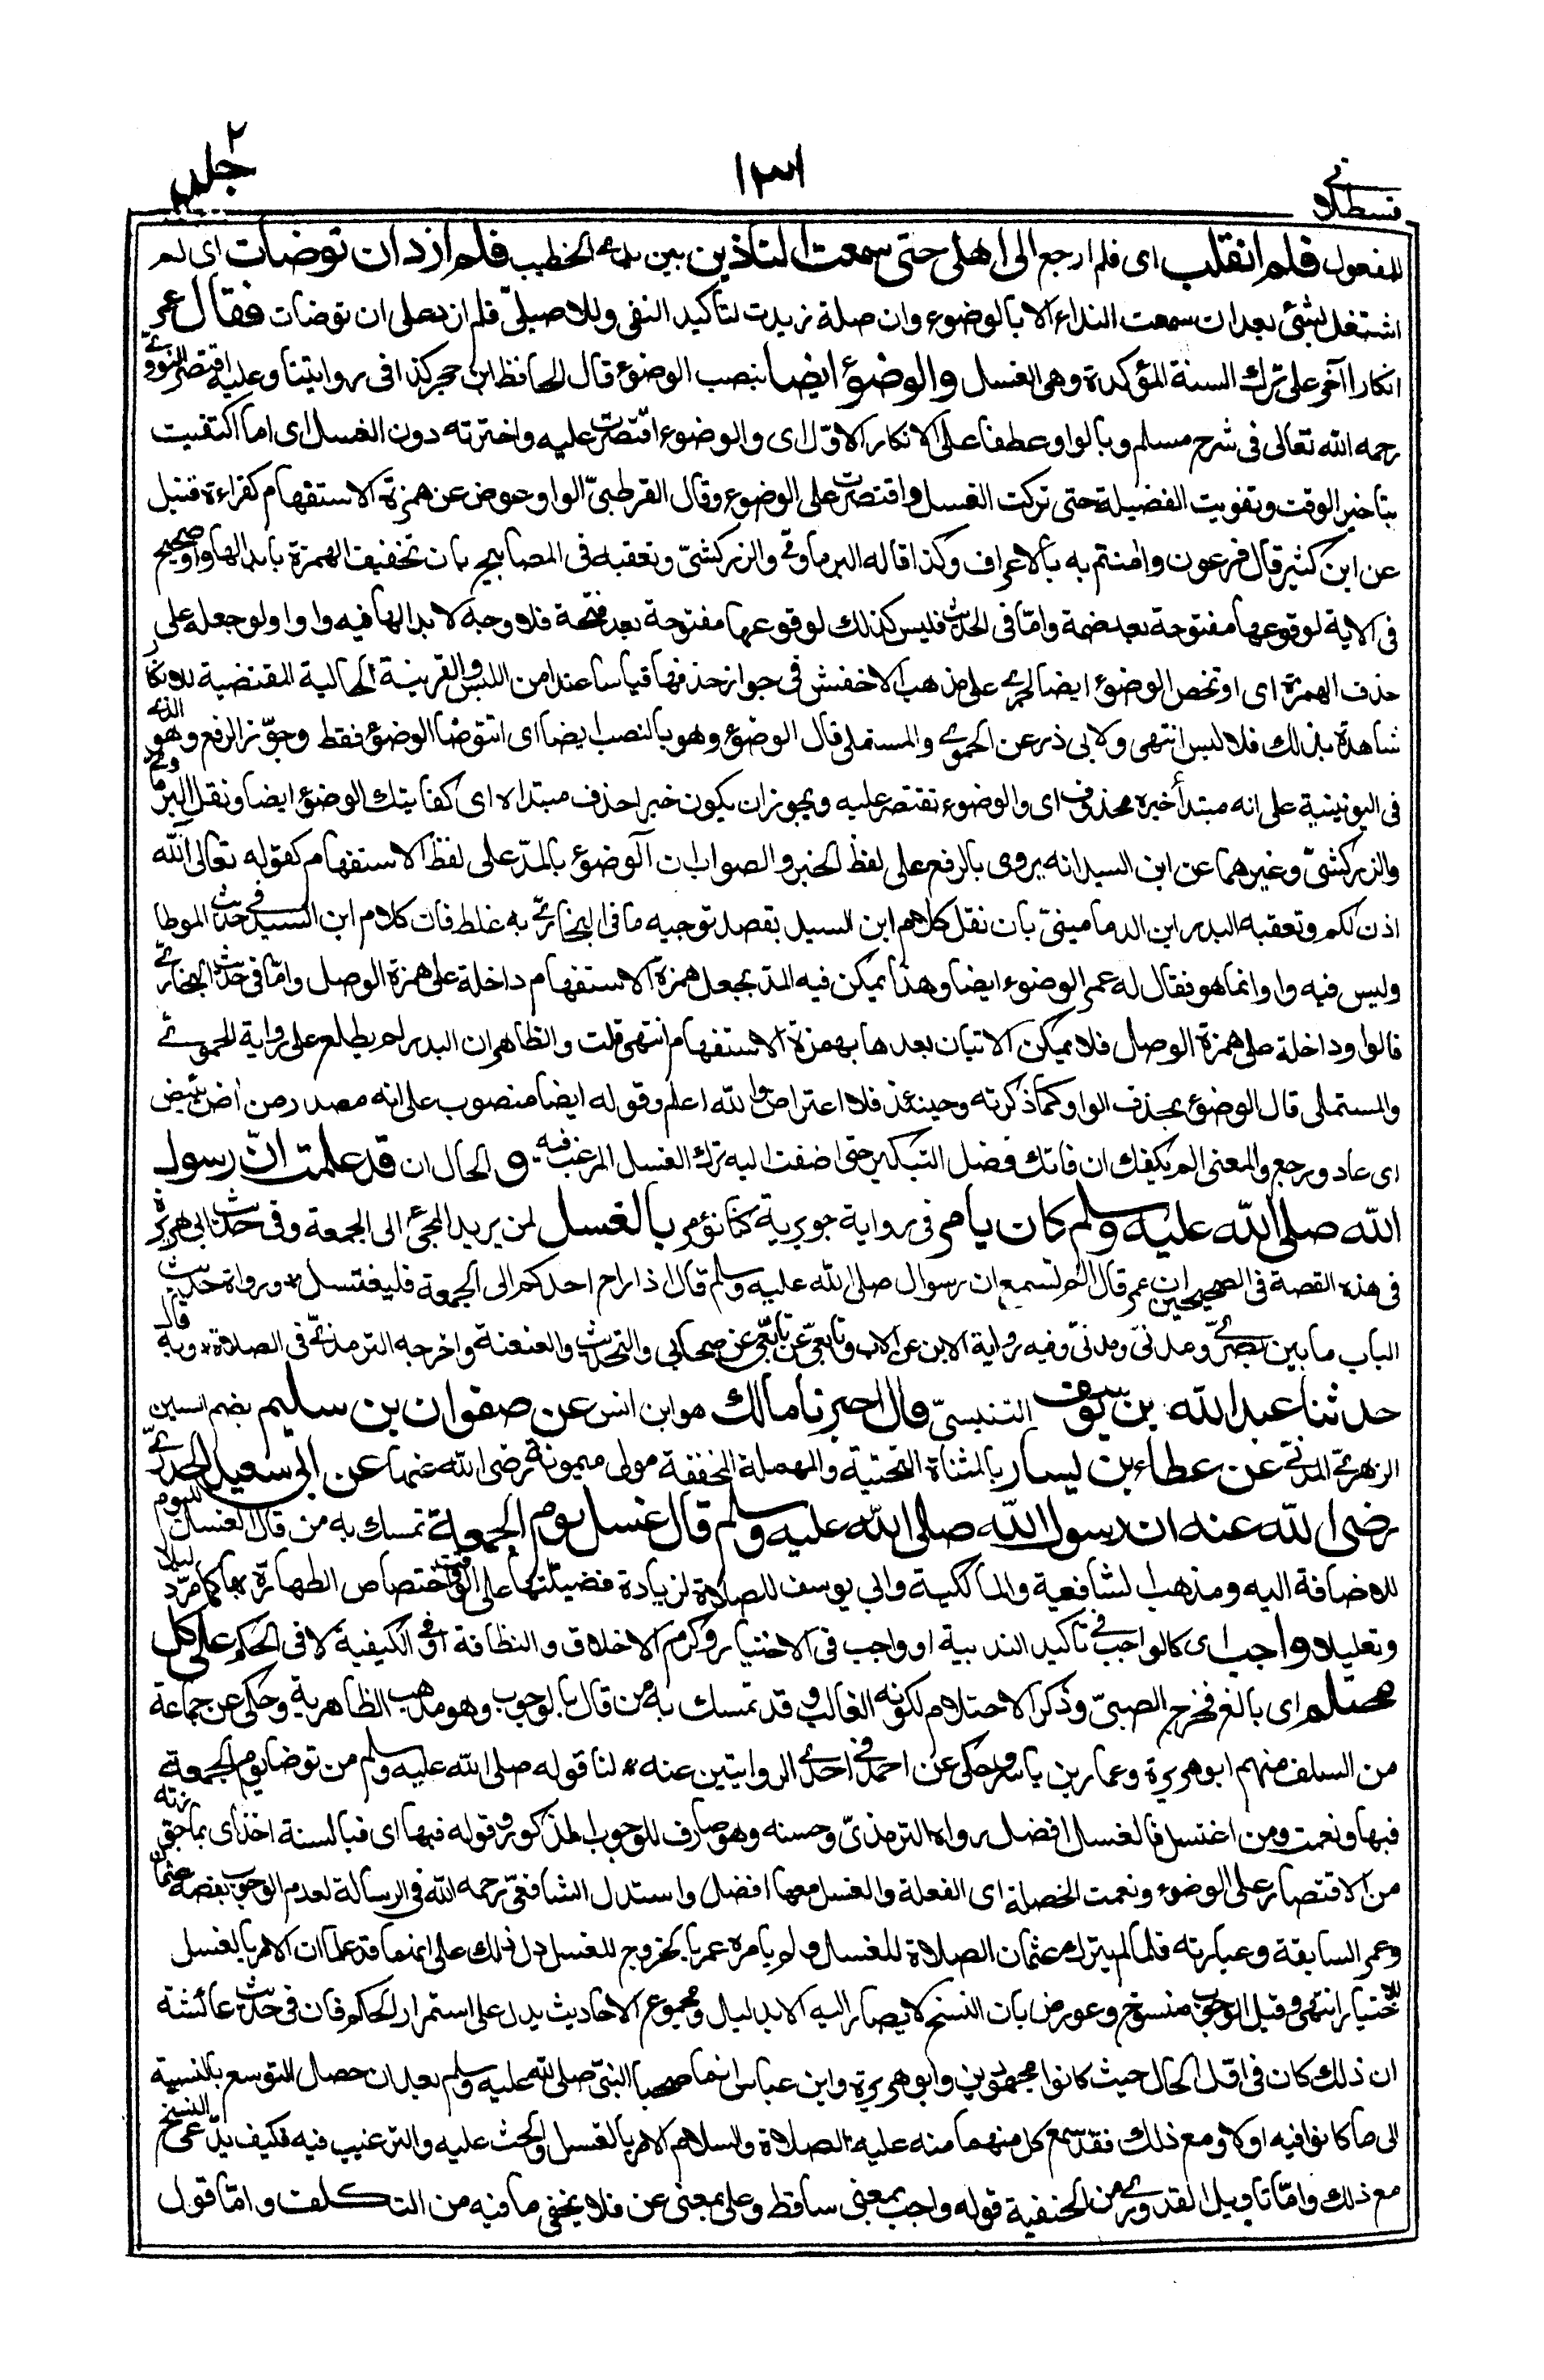 قسطلانی
١٣١
جلد ٢
للمفعول فلم انقلب اى فلم ارجع الى اهلى حتى سمعت التاذين بين يدى الخطيب فلم ازد ان توضات اى لم
اشتغل بشئ بعد ان سمعت النداء الا بالوضوء وان صلة زيدت لتاكيد النفى وللاصيلىّ فلم ازد على ان توضات فقال عمر
انكارا آخر على ترك السنة المؤكدة وهى الغسل والوضوء ايضا بنصب الوضوء قال الحافظ ابن حجر كذا فى روايتنا وعليه اقتصر النووىّ
رحمه الله تعالى فى شرح مسلم وبالواو عطفا على الانكار الاوّل اى والوضوء اقتصرت عليه واخترته دون الغسل اى اما اكتفيت
بتاخير الوقت وتفويت الفضيلة حتى تركت الغسل واقتصرت على الوضوء وقال القرطبىّ الواو عوض عن همزة الاستفهام كقراءة قنبل
عن ابن كثير قال فرعون وامنتم به بالاعراف وكذا قاله البرماوى والزركشىّ وتعقبه فى المصابيح بان تخفيف الهمزة بابدالها واوا صحيح
فى الاية لوقوعها مفتوحة بعد ضمة وامّا فى الحديث فليس كذلك لوقوعها مفتوحة بعد فتحة فلا وجه لابدالها فيه واوا ولو جعله على
حذف الهمزة اى او تخص الوضوء ايضا لجرى على مذهب الاخفش فى جواز حذفها قياسا عند امن اللبس والقرينة الحالية المقتضية للانكار
شاهدة بذلك فلا لبس انتهى ولابى ذر عن الحموى والمستملى قال الوضوء وهو بالنصب ايضا اى اتتوضا الوضوء فقط وجوّز الرفع وهو الذى
فى اليونينية على انه مبتدأ خبره محذوف اى والوضوء تقتصر عليه ويجوز ان يكون خبرا حذف مبتداه اى كفايتك الوضوء ايضا ونقل البرماوىّ
والزركشىّ وغيرهما عن ابن السيد انه يروى بالرفع على لفظ الخبر والصواب ان آلوضوء بالمدّ على لفظ الاستفهام كقوله تعالى آلله
اذن لكم وتعقبه البدر ابن الدمامينىّ بان نقل كلام ابن السيد بقصد توجيه ما فى البخارىّ به غلط فان كلام ابن السيد فى حديث الموطا
وليس فيه واو انما هو فقال له عمر الوضوء ايضا وهذا يمكن فيه المد بجعل همزة الاستفهام داخلة على همزة الوصل وامّا فى حديث البخارىّ
فالواو داخلة على همزة الوصل فلا يمكن الاتيان بعدها بهمزة الاستفهام انتهى قلت والظاهر ان البدر لم يطلع على رواية الحموى
والمستملى قال الوضوء بحذف الواو كما ذكرته وحينئذ فلا اعتراض والله اعلم وقوله ايضا منصوب على انه مصدر من اض يئيض
اى عاد ورجع والمعنى الم يكفك ان فاتك فضل التبكير حتى اضفت اليه ترك الغسل المرغب فيه و الحال ان قد علمت انّ رسول
الله صلى الله عليه وسلم كان يامر فى رواية جويرية كنا نؤمر بالغسل لمن يريد المجئ الى الجمعة وفى حديث ابى هريرة
فى هذه القصة فى الصحيحين ان عمر قال الم تسمع ان رسول صلى الله عليه وسلم قال اذا راح احدكم الى الجمعة فليغتسل * ورواة حديث
الباب ما بين بصرىّ ومدنىّ ومدنىّ وفيه رواية الابن عن الاب وتابعىّ عن تابعىّ عن صحابى والتحديث والعنعنة واخرجه الترمذىّ فى الصلاة * وبه قال
حدثنا عبد الله بن يوسف التنيسىّ قال اخبرنا مالك هو ابن انس عن صفوان بن سليم بضم السين
الزهرىّ المدنىّ عن عطاء بن يسار بالمثناة التحتية والمهملة المخففة مولى ميمونة رضى الله عنها عن ابى سعيد الخدرىّ
رضى الله عنه ان رسول الله صلى الله عليه وسلم قال غسل يوم الجمعة تمسك به من قال الغسل لليوم
للاضافة اليه ومذهب الشافعية والمالكية وابى يوسف للصلاة لزيادة فضيلتها على الوقت واختصاص الطهارة بها كما مرّ دليلا
وتعليلا واجب اى كالواجب فى تاكيد الندبية او واجب فى الاختيار وكرم الاخلاق والنظافة او فى الكيفية لا فى الحكم على كل
محتلم اى بالغ فخرج الصبىّ وذكر الاحتلام لكونه الغالب وقد تمسك به من قال بالوجوب وهو مذهب الظاهرية وحكى عن جماعة
من السلف منهم ابو هريرة وعمار بن ياسر وحكى عن احمد فى احدى الروايتين عنه * لنا قوله صلى الله عليه وسلم من توضا يوم الجمعة
فبها ونعمت ومن اغتسل فالغسل افضل رواه الترمذىّ وحسنه وهو صارف للوجوب المذكور وقوله فبها اى فبالسنة اخذ اى بما جوّزته
من الاقتصار على الوضوء ونعمت الخصلة اى الفعلة والغسل معها افضل واستدل الشافعىّ رحمه الله فى الرسالة لعدم الوجوب بقصة عثمان
وعمر السابقة وعبارته فلما لم يترك عثمان الصلاة للغسل ولم يامره عمر بالخروج للغسل دل ذلك على انهما قد علما ان الامر بالغسل
للاختيار انتهى وقيل الوجوب منسوخ وعورض بان النسخ لا يصار اليه الا بدليل ومجموع الاحاديث يدل على استمرار الحكم فان فى حديث عائشة
ان ذلك كان فى اوّل الحال حيث كانوا مجهودين وابو هريرة وابن عباس انما صحبا النبىّ صلى الله عليه وسلم بعد ان حصل التوسع بالنسبة
الى ما كانوا فيه اولا ومع ذلك فقد سمع كل منهما منه عليه الصلاة والسلام الامر بالغسل والحث عليه والترغيب فيه فكيف يدّعى النسخ
مع ذلك وامّا تاويل القدورى من الحنفية قوله واجب بمعنى ساقط وعلى بمعنى عن فلا يخفى ما فيه من التكلف وامّا قول